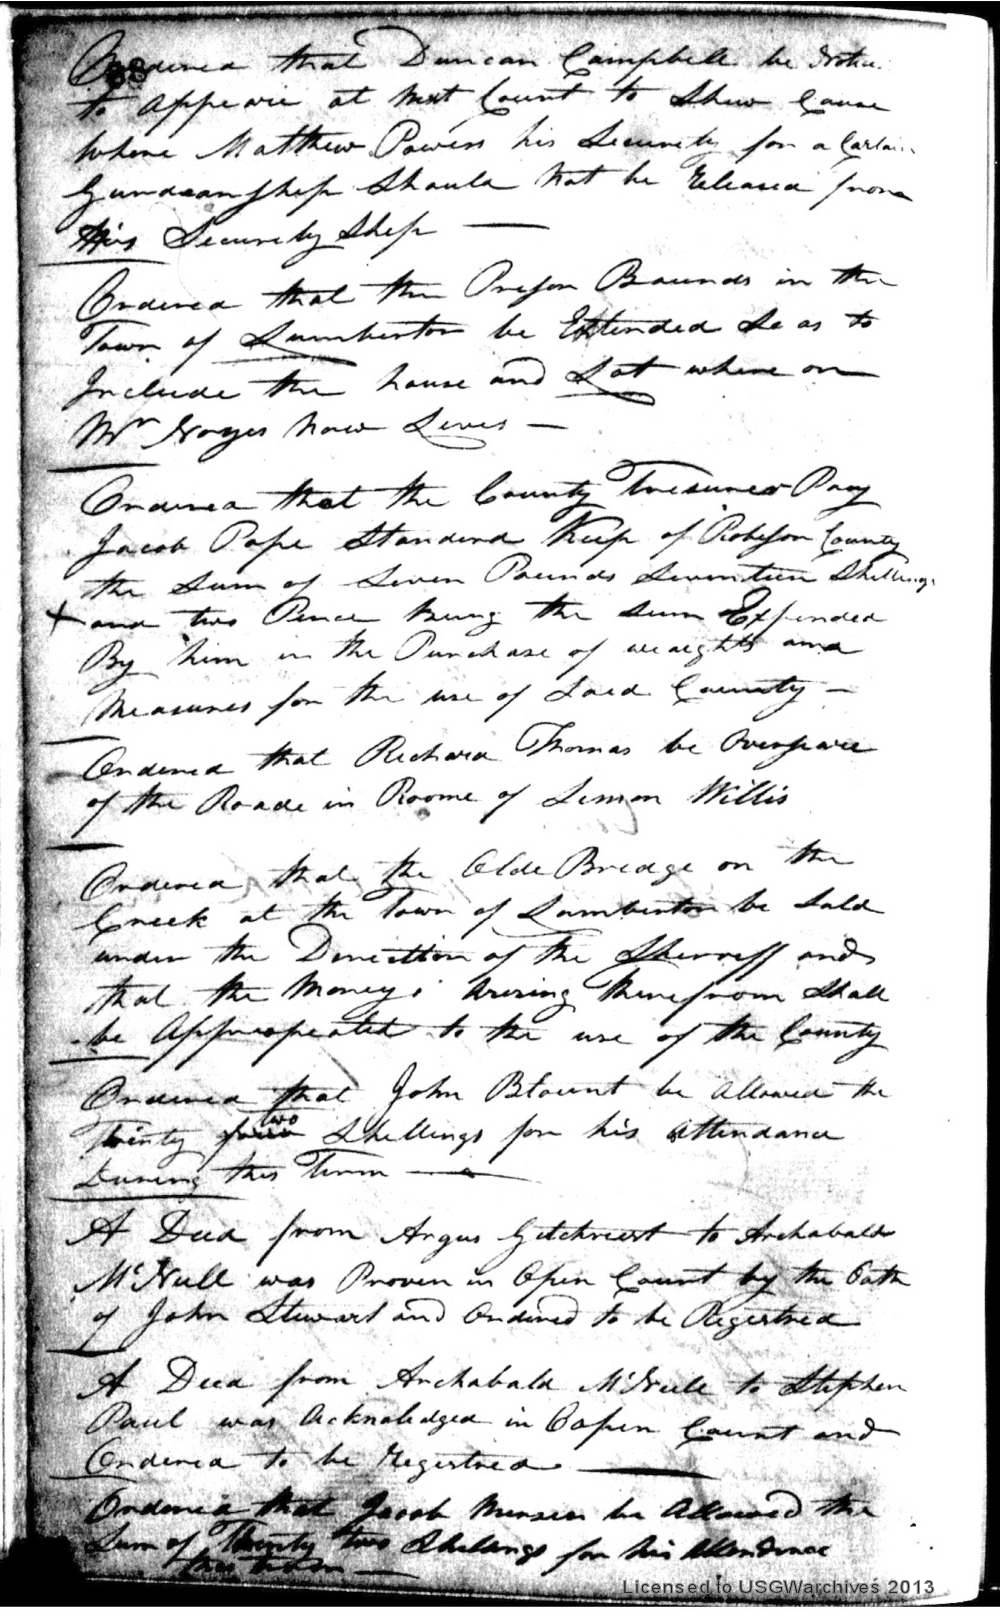 88
Ordered that Duncan Campbell be
to Appeare at Next Court to Shew Cause
Where Matthew Powers his Security for a Certain
Gurdeanshep Should Not be Released from
this Securityshep —
Ordered that the Preson Bounds in the
Town of Lumberton be Extended So as to
Include the house and Lot where on
Mr Noyes Now Lives —
Ordered that the County Tresurer Pay
Jacob Pope Standerd Keep of Robeson County
the Sum of Seven Pounds Seventeen Shellings
+ and two Pence being the Sum Expended
By him in the Purchase of weaights and
Measures for the use of Said County —
Ordered that Richard Thomas be Overseare
of the Roade in Roome of Simon Willis
Ordered that the Olde Bredge on the
Creek at the Town of Lumberton be Sold
under the Direction of the Sherreff and
that the Moneys Arising therefrom Shall
be Appropeated to the use of the County
Ordered that John Blount be Allowed the
two
Twenty Shellings for his Attendance
During this Term —
A Deed from Angus Gilchriest to Archabald
McNeill was Proven in Open Court by the Oath
of John Stewart and Ordered to be Regestred
A Deed from Archabald McNeill to Stephen
Paul was Acknoledged in Oapen Court and
Ordered to be Regestred —
Ordered that Jacob be Allowed the
Sum of Twenty two Shellings for his Attendence
this term —
Licensed to USGWarchives 2013